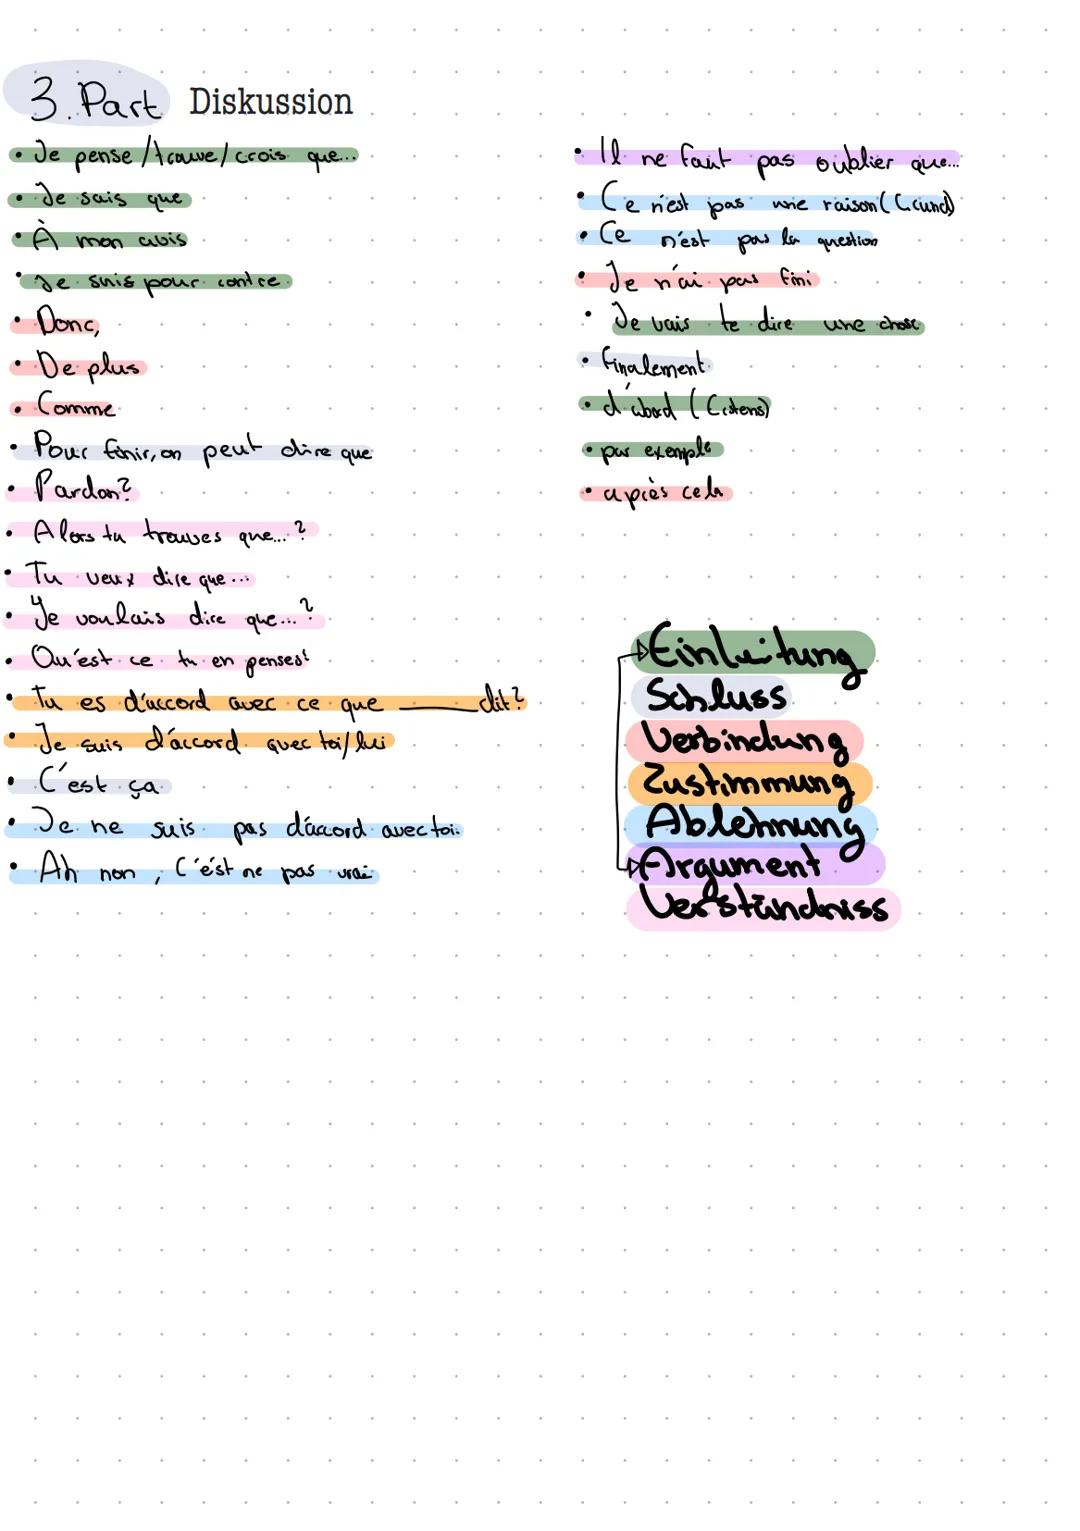 3. Part Diskussion
• Je pense/trouve/crois que...
• Je sais que
• À mon avis
• Je suis pour contre
• Donc,
• De plus
• Comme
• Pour finir, on peut dire que
• Pardon?
• Alors tu trouves que...?
• Tu veux dire que...
• Je voulais dire que...?
• Qu'est ce tu en penses?
• Tu es d'accord avec ce que ____ dit?
• Je suis d'accord avec toi/lui
• C'est ça
• Je ne suis pas d'accord avec toi.
• Ah non, C'ést ne pas vrai
• Il ne faut pas oublier que...
• Ce n'est pas une raison (Grund)
• Ce n'est pas la question
• Je n'ai pas fini
• Je vais te dire une chose
• finalement
• d'abord (Erstens)
• par exemple
• après cela
Einleitung
Schluss
Verbindung
Zustimmung
Ablehnung
Argument
Verständniss